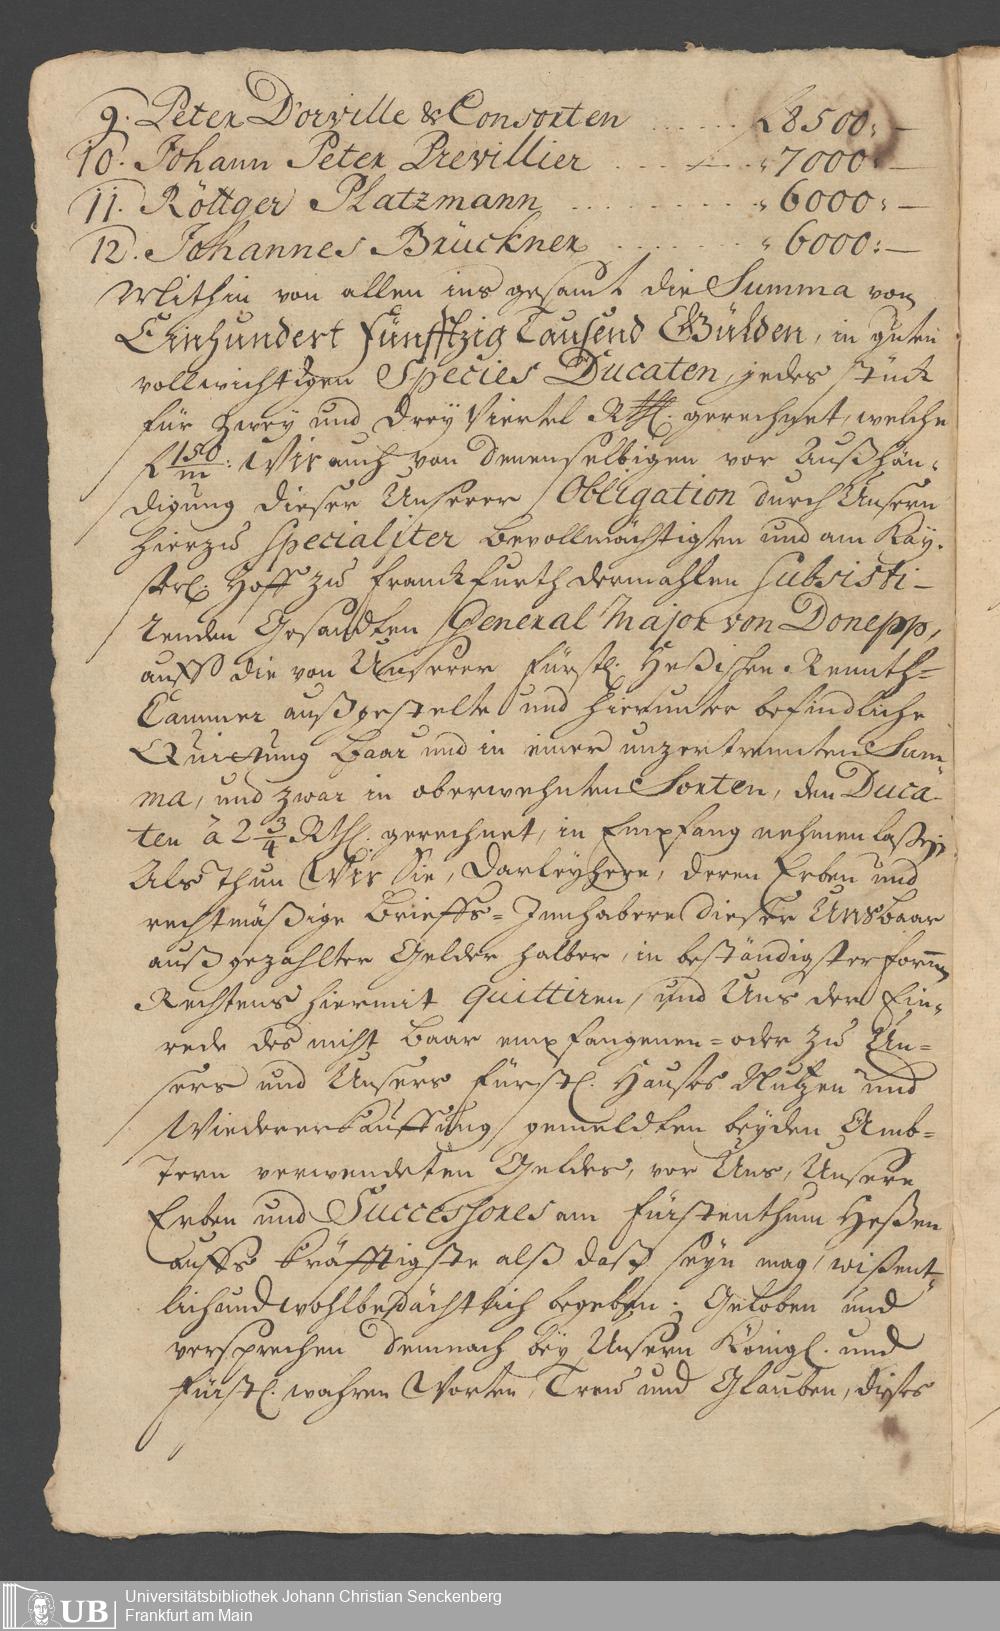 9. Peter D'orville & Consorten ...... f 8500:—
10. Johann Peter Previllier ...... " 7000:—
11. Röttger Platzmann ...... " 6000:—
12. Johannes Brückner ...... " 6000:—
Mithin von allen ins gesamt die Summa von
Einhundert Fünfftzig Tausend Gülden, in guten
vollwichtigen Species Ducaten, jedes stück
für zwey und drey Viertel Rthl. gerechnet, welche
f 150/m: Wir auch von denenselbigen vor Außhän-
digung dieser Unserer Obligation durch Unsern
hierzu specialiter bevollmächtigten und am Kay-
serl. Hoff zu Franckfurth dermahlen subsisti-
renden Gesandten General Major von Donepp,
auff die von Unserer Fürstl. Heßischen Renth-
Cammer außgestelte und hierunter befindliche
Quittung baar und in einer unzertrennten Sum-
ma, und zwar in oberwehnten Sorten, den Duca-
ten à 2 3/4 Rthl. gerechnet, in Empfang nehmen laßen,
Als thun Wir Sie, Darleyhere, deren Erben und
rechtmäßige Brieffs-Innhabere dieser Uns baar
außgezahlter Gelder halber, in beständigster Form
Rechtens hiermit quittiren, und Uns der Ein-
rede des nicht baar empfangenen- oder zu Un-
sers und Unsers Fürstl. Hauses Nutzen und
Wiedererkauffung gemeldten beyden Amb-
tern verwendeten Geldes, vor Uns, Unsere
Erben und Successores am Fürstenthum Heßen
auffs kräfftigste alß daß seyn mag, wißent-
lich und wohlbedächtlich begeben; Geloben und
versprechen demnach bey Unsern Königl. und
Fürstl. wahren Worten, Treu und Glauben, dieses
Universitätsbibliothek Johann Christian Senckenberg
UB Frankfurt am Main